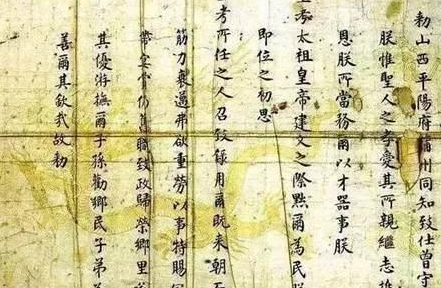 勑山西平陽府蒲州同知致仕曾守
朕惟聖人之孝愛其所親繼志
恩朕所當務爾以才器事朕
太祖皇帝建文之際黜爾為民
即位之初思
考所任之人召致錄用爾既来朝
筋力衰邁弗欲重勞以事特賜
帶仍舊職致政歸榮鄉里
其優游撫爾子孫勸鄉民子弟
善爾其欽哉故勑